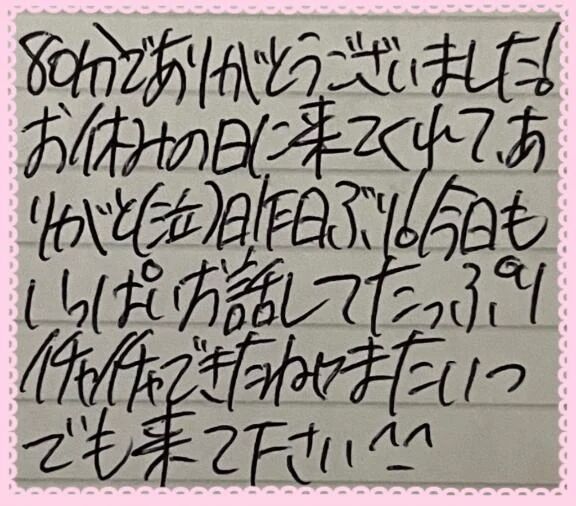 80分でありがとうございました!
お休みの日に来てくれて、あ
りがと(泣)昨日ぶり!今日も
いっぱいお話してたっぷり
イチャイチャできたねまたいつ
でも来て下さい^^